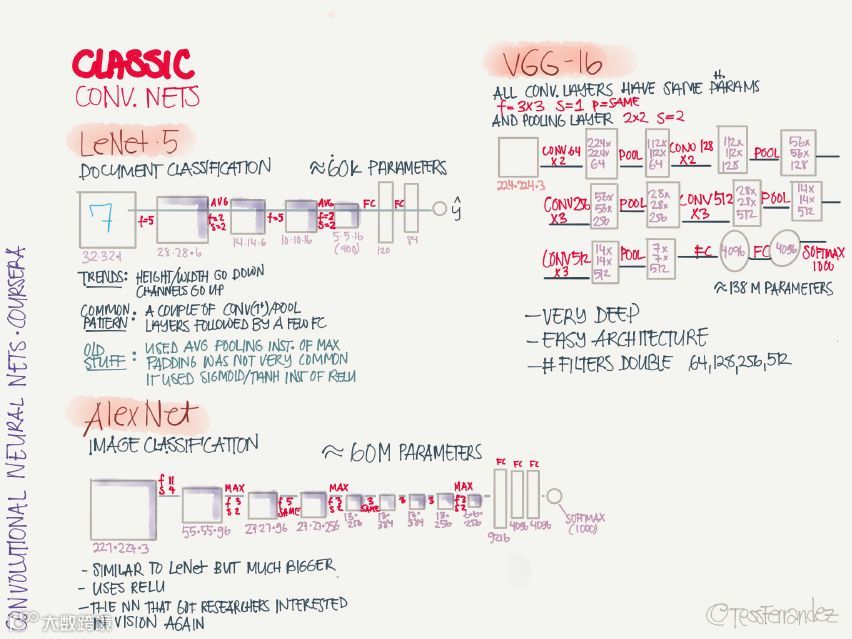 CLASSIC
CONV. NETS
LeNet-5
DOCUMENT CLASSIFICATION ≈60K PARAMETERS
7
f=5
AVG
f=2
S=2
f=5
AVG
f=2
S=2
FC
FC
ŷ
32·32·1
28·28·6
14·14·6
10·10·16
5·5·16
(400)
120
84
TRENDS: HEIGHT/WIDTH GO DOWN
CHANNELS GO UP
COMMON PATTERN: A COUPLE OF CONV(1+)/POOL
LAYERS FOLLOWED BY A FEW FC
OLD STUFF: USED AVG POOLING INST. OF MAX
PADDING WAS NOT VERY COMMON
IT USED SIGMOID/TANH INST OF RELU
AlexNet
IMAGE CLASSIFICATION ≈ 60M PARAMETERS
f 11
S 4
MAX
f 3
S 2
f 5
SAME
MAX
f 3
S 2
3
SAME
3
3
MAX
f 3
S 2
FC FC FC
227·227·3
55·55·96
27·27·96
27·27·256
13·
256
13·
384
13·
384
13·
256
6·6·
256
9216
4096
4096
SOFTMAX
(1000)
- SIMILAR TO LeNet BUT MUCH BIGGER
- USES RELU
- THE NN THAT GOT RESEARCHERS INTERESTED
IN VISION AGAIN
VGG-16
ALL CONV. LAYERS HAVE SAME H. PARAMS
f=3x3 S=1 P=SAME
AND POOLING LAYER 2x2 S=2
224·224·3
CONV 64
x2
224x
224x
64
POOL
112x
112x
64
CONV 128
x2
112x
112x
128
POOL
56x
56x
128
CONV 256
x3
56x
56x
256
POOL
28x
28x
256
CONV 512
x3
28x
28x
512
POOL
14x
14x
512
CONV 512
x3
14x
14x
512
POOL
7x
7x
512
FC
4096
FC
4096
SOFTMAX
1000
≈138 M PARAMETERS
- VERY DEEP
- EASY ARCHITECTURE
- # FILTERS DOUBLE 64,128,256,512
CONVOLUTIONAL NEURAL NETS · COURSERA
大数跨境
@TessFerrandez